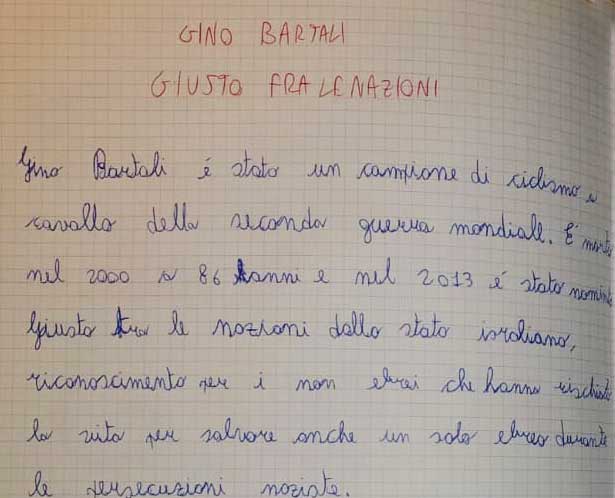 GINO BARTALI
GIUSTO FRA LE NAZIONI
Gino Bartali é stato un campione di ciclismo a
cavallo della seconda guerra mondiale. É morto
nel 2000 a 86 anni e nel 2013 é stato nomin
Giusto tra le nazioni dallo stato isroliano,
riconoscimento per i non ebrei che hanno rischiato
la vita per salvare anche un solo ebreo durante
le persecuzioni naziste.